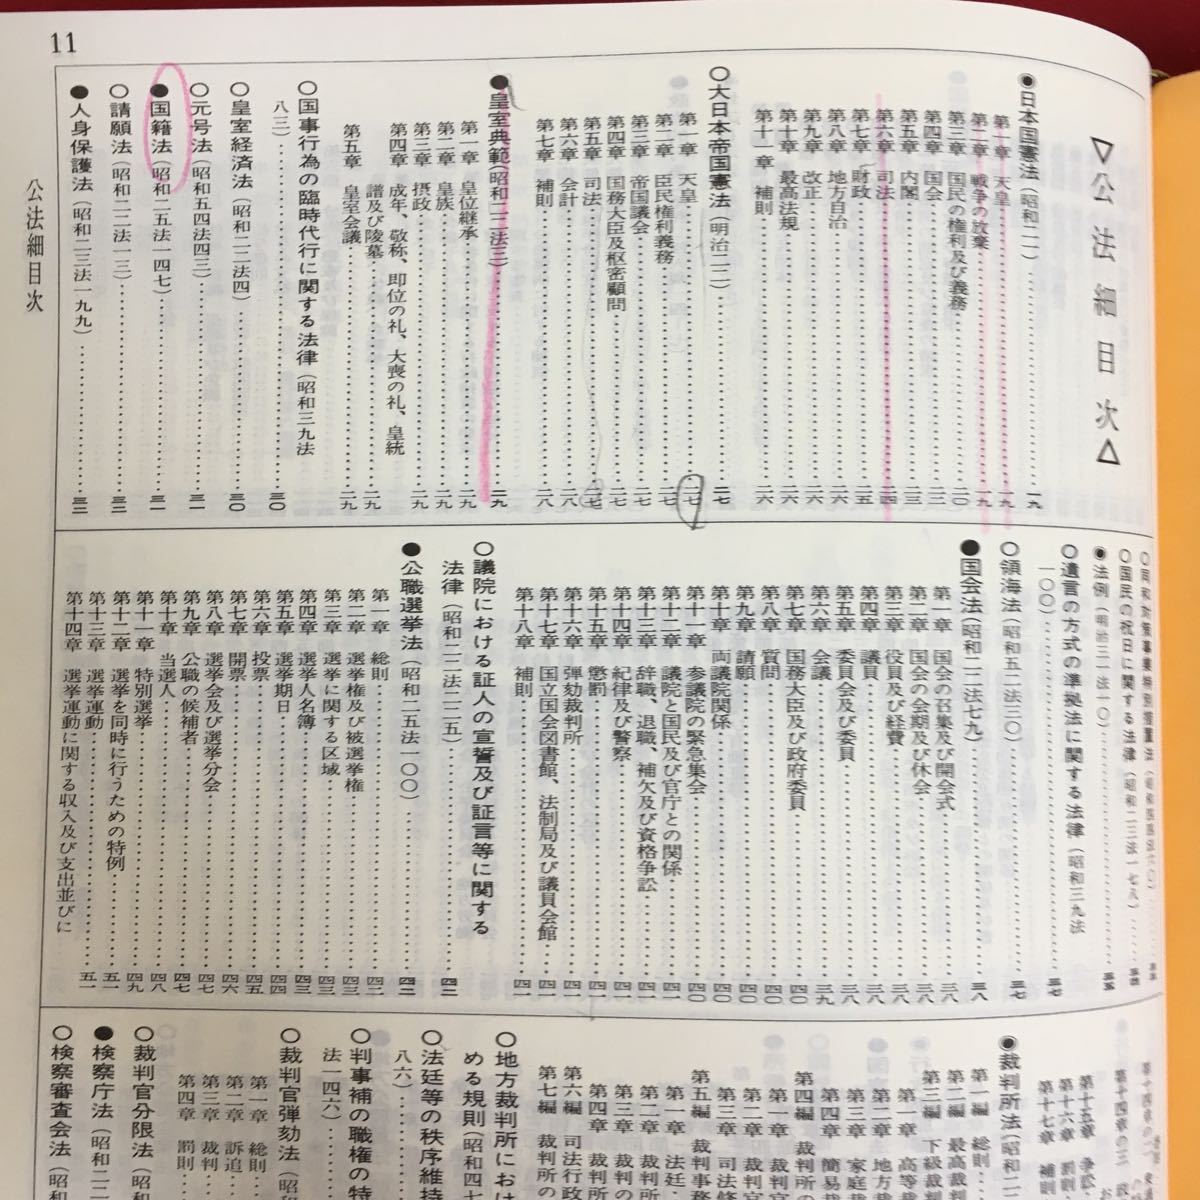 11
公法細目次
▽公法細目次△
◉日本国憲法(昭和二一)……一九
第一章 天皇……一九
第二章 戦争の放棄……一九
第三章 国民の権利及び義務……二〇
第四章 国会……二三
第五章 内閣……二三
第六章 司法……二四
第七章 財政……二五
第八章 地方自治……二六
第九章 改正……二六
第十章 最高法規……二六
第十一章 補則……二六
〇大日本帝国憲法(明治二二)……二七
第一章 天皇……二七
第二章 臣民権利義務……二七
第三章 帝国議会……二七
第四章 国務大臣及枢密顧問……二七
第五章 司法……二七
第六章 会計……二八
第七章 補則……二八
●皇室典範(昭和二二法三)……二九
第一章 皇位継承……二九
第二章 皇族……二九
第三章 摂政……二九
第四章 成年、敬称、即位の礼、大喪の礼、皇統
譜及び陵墓……二九
第五章 皇室会議……二九
〇国事行為の臨時代行に関する法律(昭和三九法
八三)……三〇
〇皇室経済法(昭和二二法四)……三〇
〇元号法(昭和五四法四三)……三一
●国籍法(昭和二五法一四七)……三一
〇請願法(昭和二二法一三)……三二
●人身保護法(昭和二三法一九九)……三二
〇国民の祝日に関する法律(昭和二三法一七八)……三四
◉法例(明治三一法一〇)……三五
〇遺言の方式の準拠法に関する法律(昭和三九法
一〇〇)……三七
〇領海法(昭和五二法三〇)……三七
●国会法(昭和二二法七九)……三八
第一章 国会の召集及び開会式……三八
第二章 国会の会期及び休会……三八
第三章 役員及び経費……三八
第四章 議員……三八
第五章 委員会及び委員……三八
第六章 会議……三九
第七章 国務大臣及び政府委員……四〇
第八章 質問……四〇
第九章 請願……四〇
第十章 両議院関係……四〇
第十一章 参議院の緊急集会……四〇
第十二章 議院と国民及び官庁との関係……四一
第十三章 辞職、退職、補欠及び資格争訟……四一
第十四章 紀律及び警察……四一
第十五章 懲罰……四一
第十六章 弾劾裁判所……四一
第十七章 国立国会図書館、法制局及び議員会館……四一
第十八章 補則……四一
〇議院における証人の宣誓及び証言等に関する
法律(昭和二二法二二五)……四二
●公職選挙法(昭和二五法一〇〇)……四二
第一章 総則……四二
第二章 選挙権及び被選挙権……四三
第三章 選挙に関する区域……四三
第四章 選挙人名簿……四三
第五章 選挙期日……四四
第六章 投票……四五
第七章 開票……四六
第八章 選挙会及び選挙分会……四七
第九章 公職の候補者……四七
第十章 当選人……四八
第十一章 特別選挙……四九
第十二章 選挙を同時に行うための特例……五一
第十三章 選挙運動……五一
第十四章 選挙運動に関する収入及び支出並びに
第十五章 争訟
第十六章 罰則
第十七章 補則
◉裁判所法(昭和二
第一編 総則
第二編 最高裁
第三編 下級裁
第一章 高等裁
第二章 地方
第三章 家庭裁
第四章 簡易裁
第四編 裁判所の
第一章 裁判官
第二章 裁判官
第三章 司法修
第五編 裁判事務
第一章 法廷
第二章 裁判所
第三章 裁判の
第四章 裁判所
第六編 司法行政
第七編 裁判所の
〇地方裁判所におけ
める規則(昭和四七
〇法廷等の秩序維持
八六)
〇判事補の職権の特
法一四六)
〇裁判官弾劾法(昭和
第一章 総則
第二章 訴追
第三章 裁判
第四章 罰則
〇裁判官分限法(昭和
●検察庁法(昭和二二
〇検察審査会法(昭和